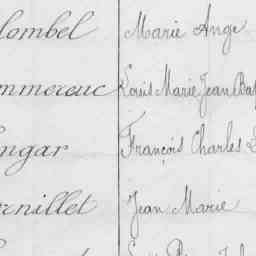 lombel Marie Ange
mmereuc Louis Marie Jean Bap
ngar François Charles L
rnillet Jean Marie